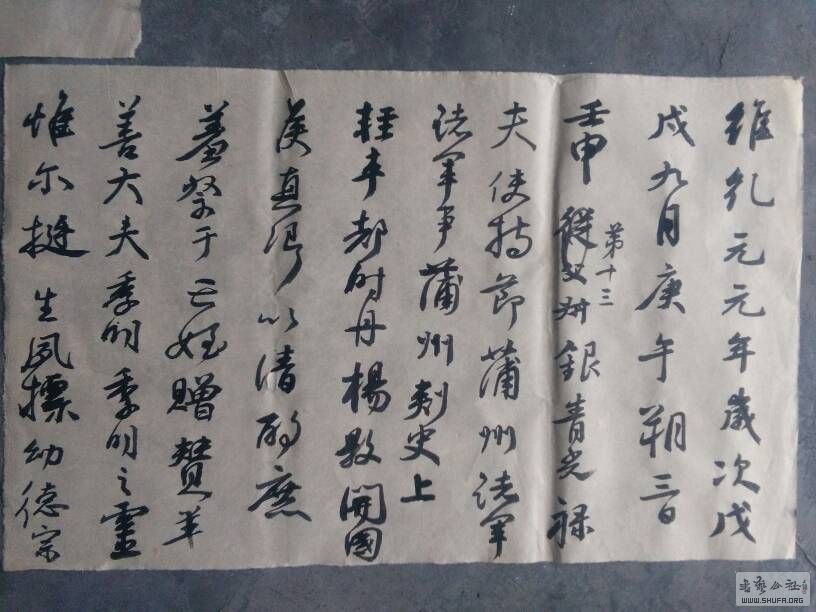 維乹元元年歲次戊
戌九月庚午朔三日
壬申從父叔銀青光祿
第十三
夫使持節蒲州諸軍
諸軍事蒲州刺史上
輕車都尉丹楊縣開國
侯真卿以清酌庶
羞祭于亡姪贈贊羊
善大夫季明季明之靈
惟尔挺生夙標幼德宗
書藝公社
WWW.SHUFA.ORG